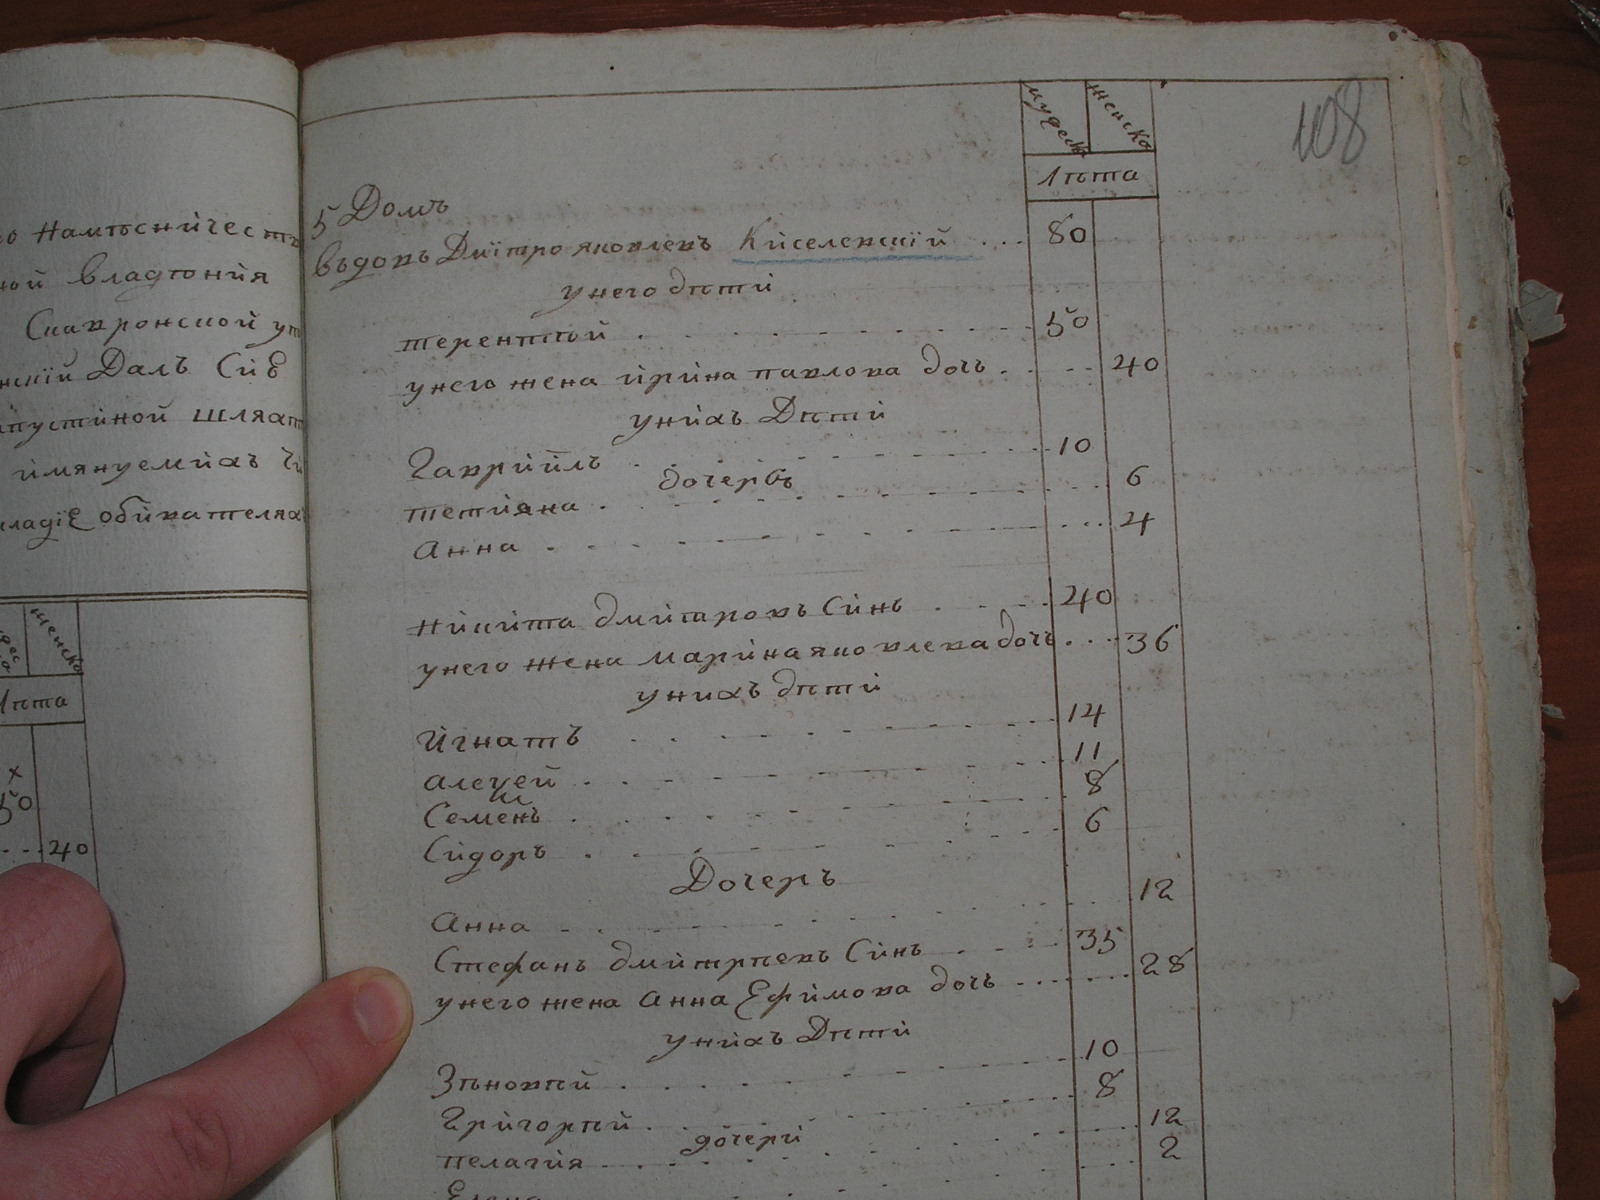 о Намѣсничест
ной владѣния
Скавронской
нский Далъ Сиѣ
пустиной шляхт
имянуемихъ
кладіе обивателях
женска
лѣта
х
50
40
мужеска
женска
108
лѣта
5 Домъ
въдовъ Дмітро яковлевъ Киселевскій 80
унего дѣти
терентѣй 50
унего жена ирина павлова дочь 40
унихъ Дѣти
Гавриилъ 10
дочерѣ
тетияна 6
Анна 4
никита дмитровъ Синъ 40
унего жена марина яковлева дочъ 36
унихъ дѣти
игнатъ 14
алексей 11
Семенъ 8
Сидоръ 6
Дочеръ
Анна 12
Стефанъ дмитриевъ Синъ 35
унего жена Анна Ефимова дочь 28
унихъ Дѣти
Зѣновѣй 10
Григорѣй 8
дочери
пелагия 12
Елена 2